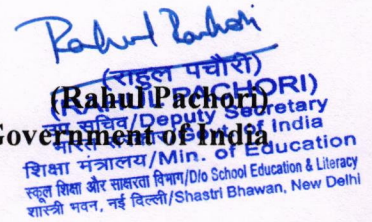 Rahul Pachori
(राहुल पचौरी)
(Rahul Pachori)
(RAHUL PACHORI)
उप सचिव/Deputy Secretary
Government of India
भारत सरकार/Govt. of India
शिक्षा मंत्रालय/Min. of Education
स्कूल शिक्षा और साक्षरता विभाग/D/o School Education & Literacy
शास्त्री भवन, नई दिल्ली/Shastri Bhawan, New Delhi